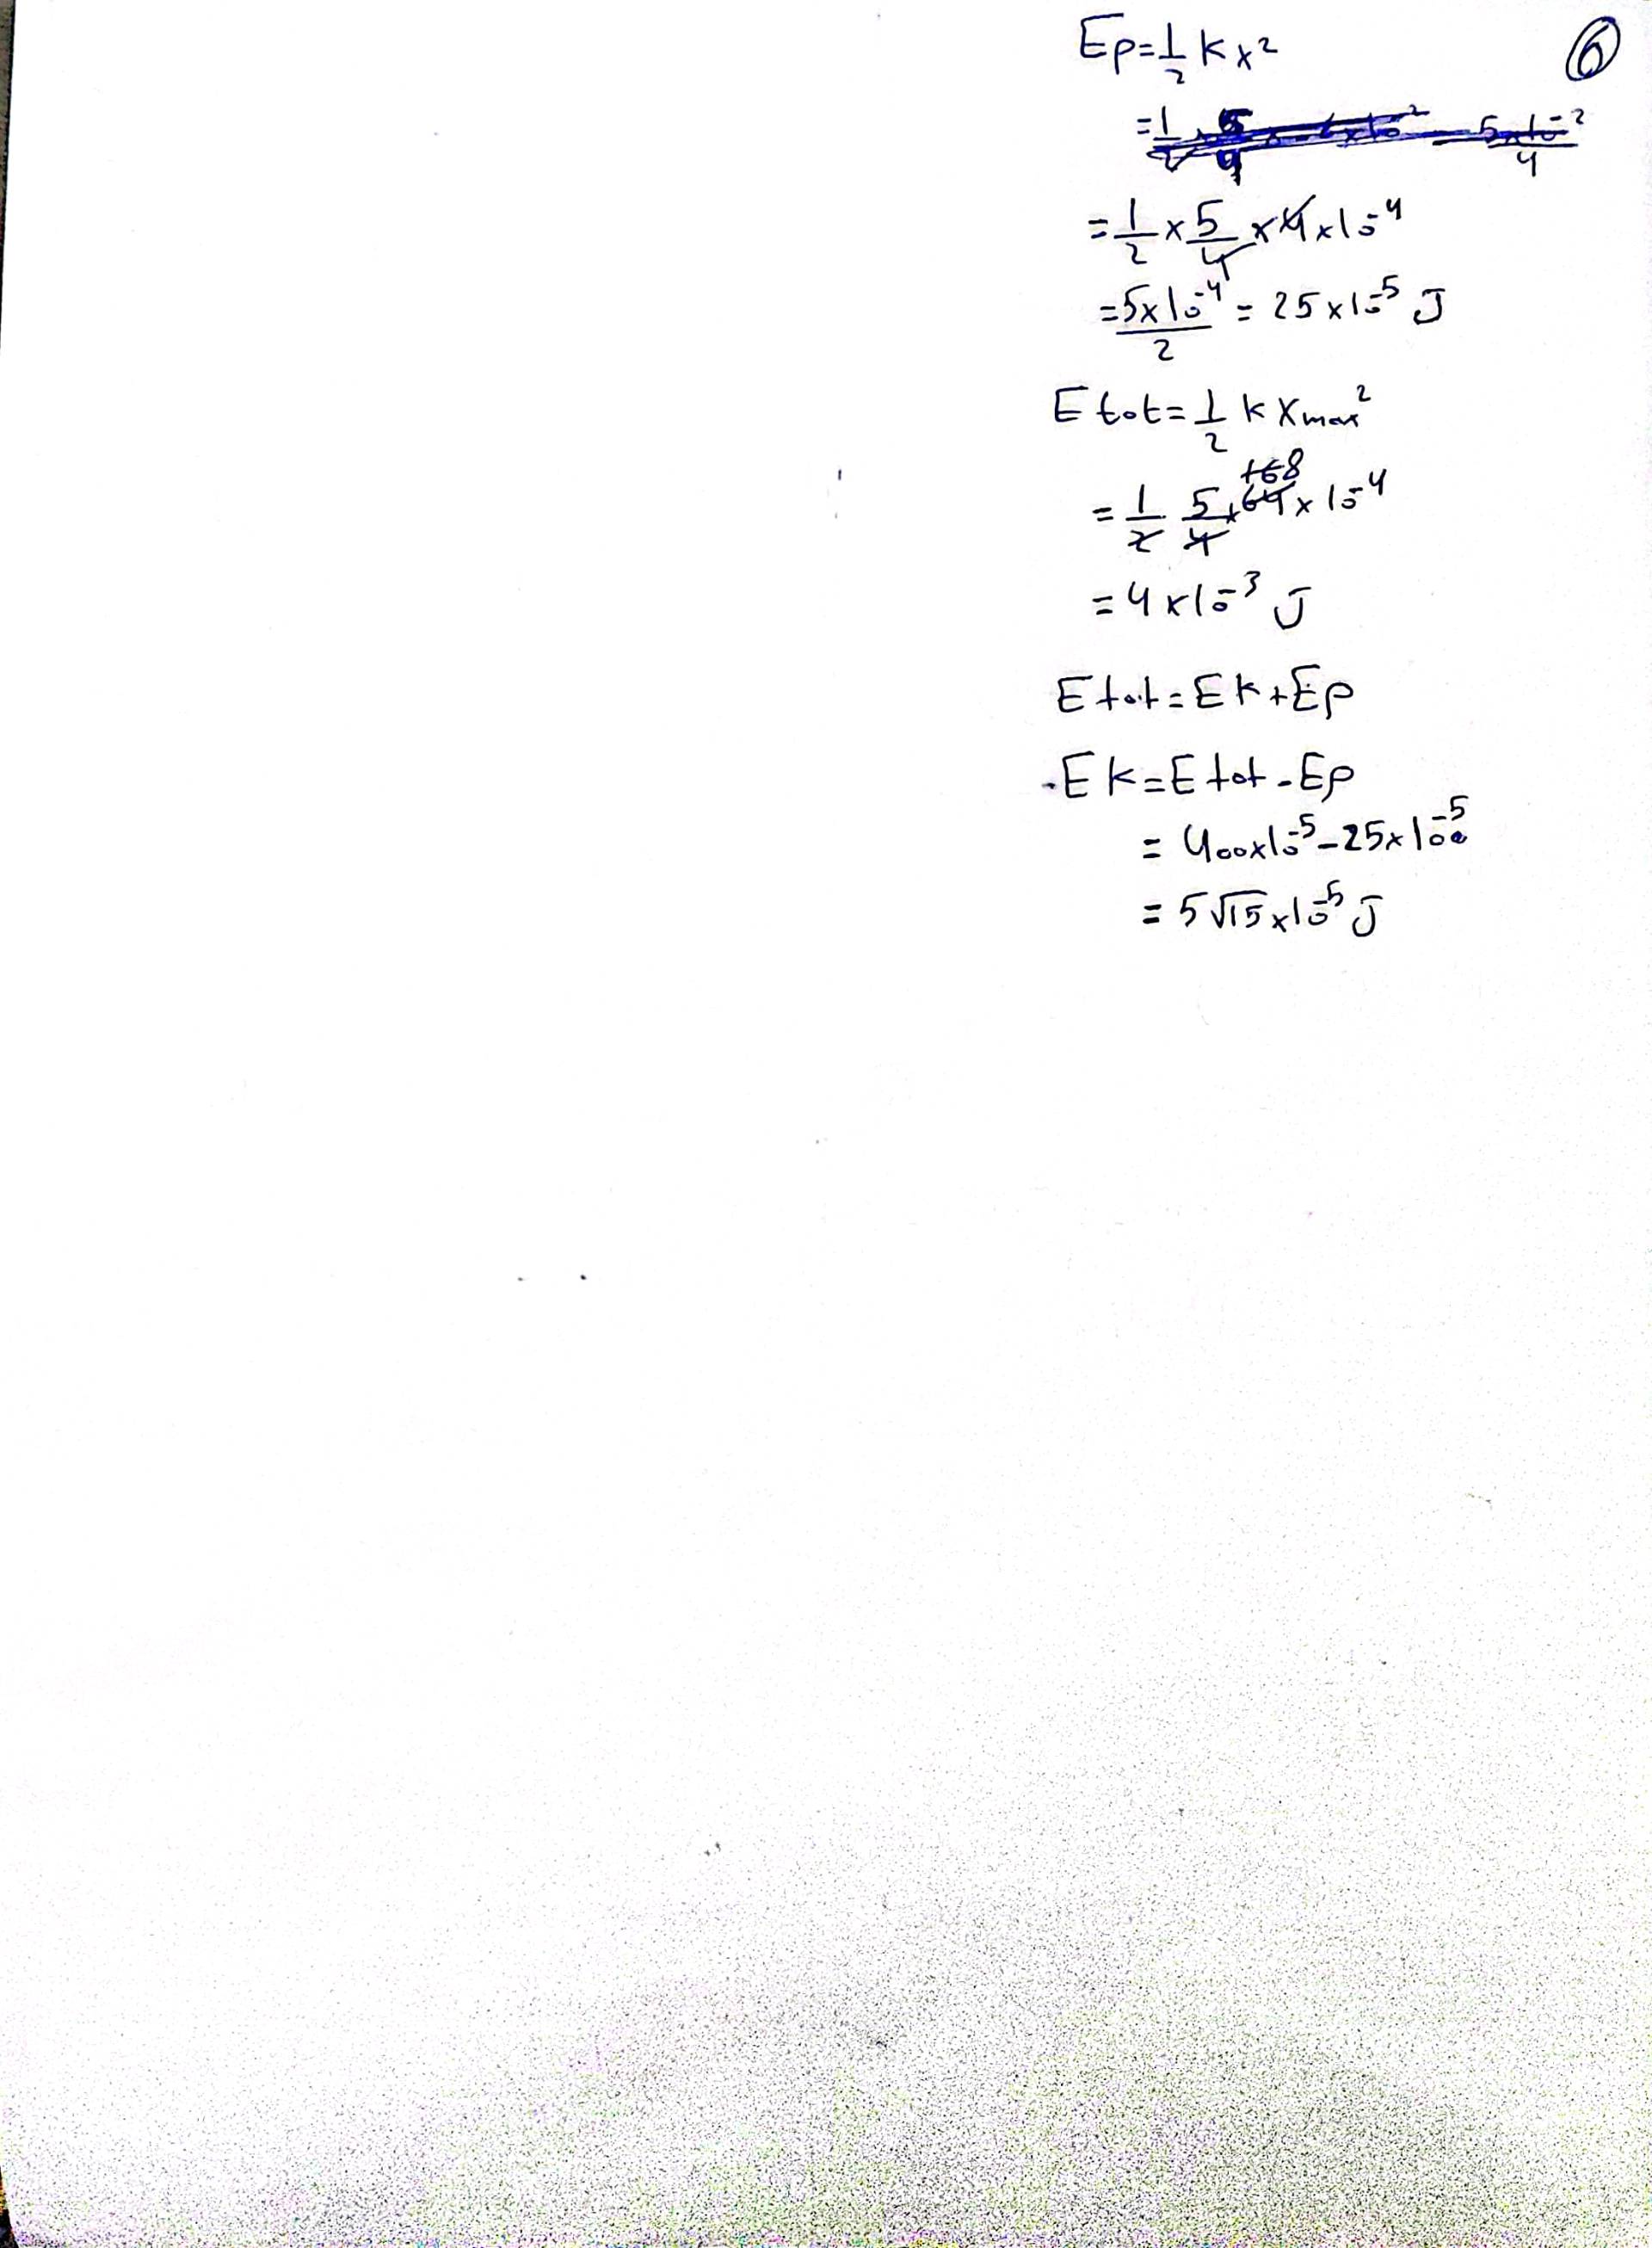 Ep=1/2 kx² ⑥
=1/2 × 5/4 × 4×10⁻⁴
=5×10⁻⁴/2 = 25×10⁻⁵ J
E tot=1/2 k Xmax²
=1/2 5/4 × 64 168 × 10⁻⁴
=4×10⁻³ J
E tot=Ek+Ep
-Ek=E tot-Ep
= 400×10⁻⁵-25×10⁻⁵
= 5√15×10⁻⁵ J